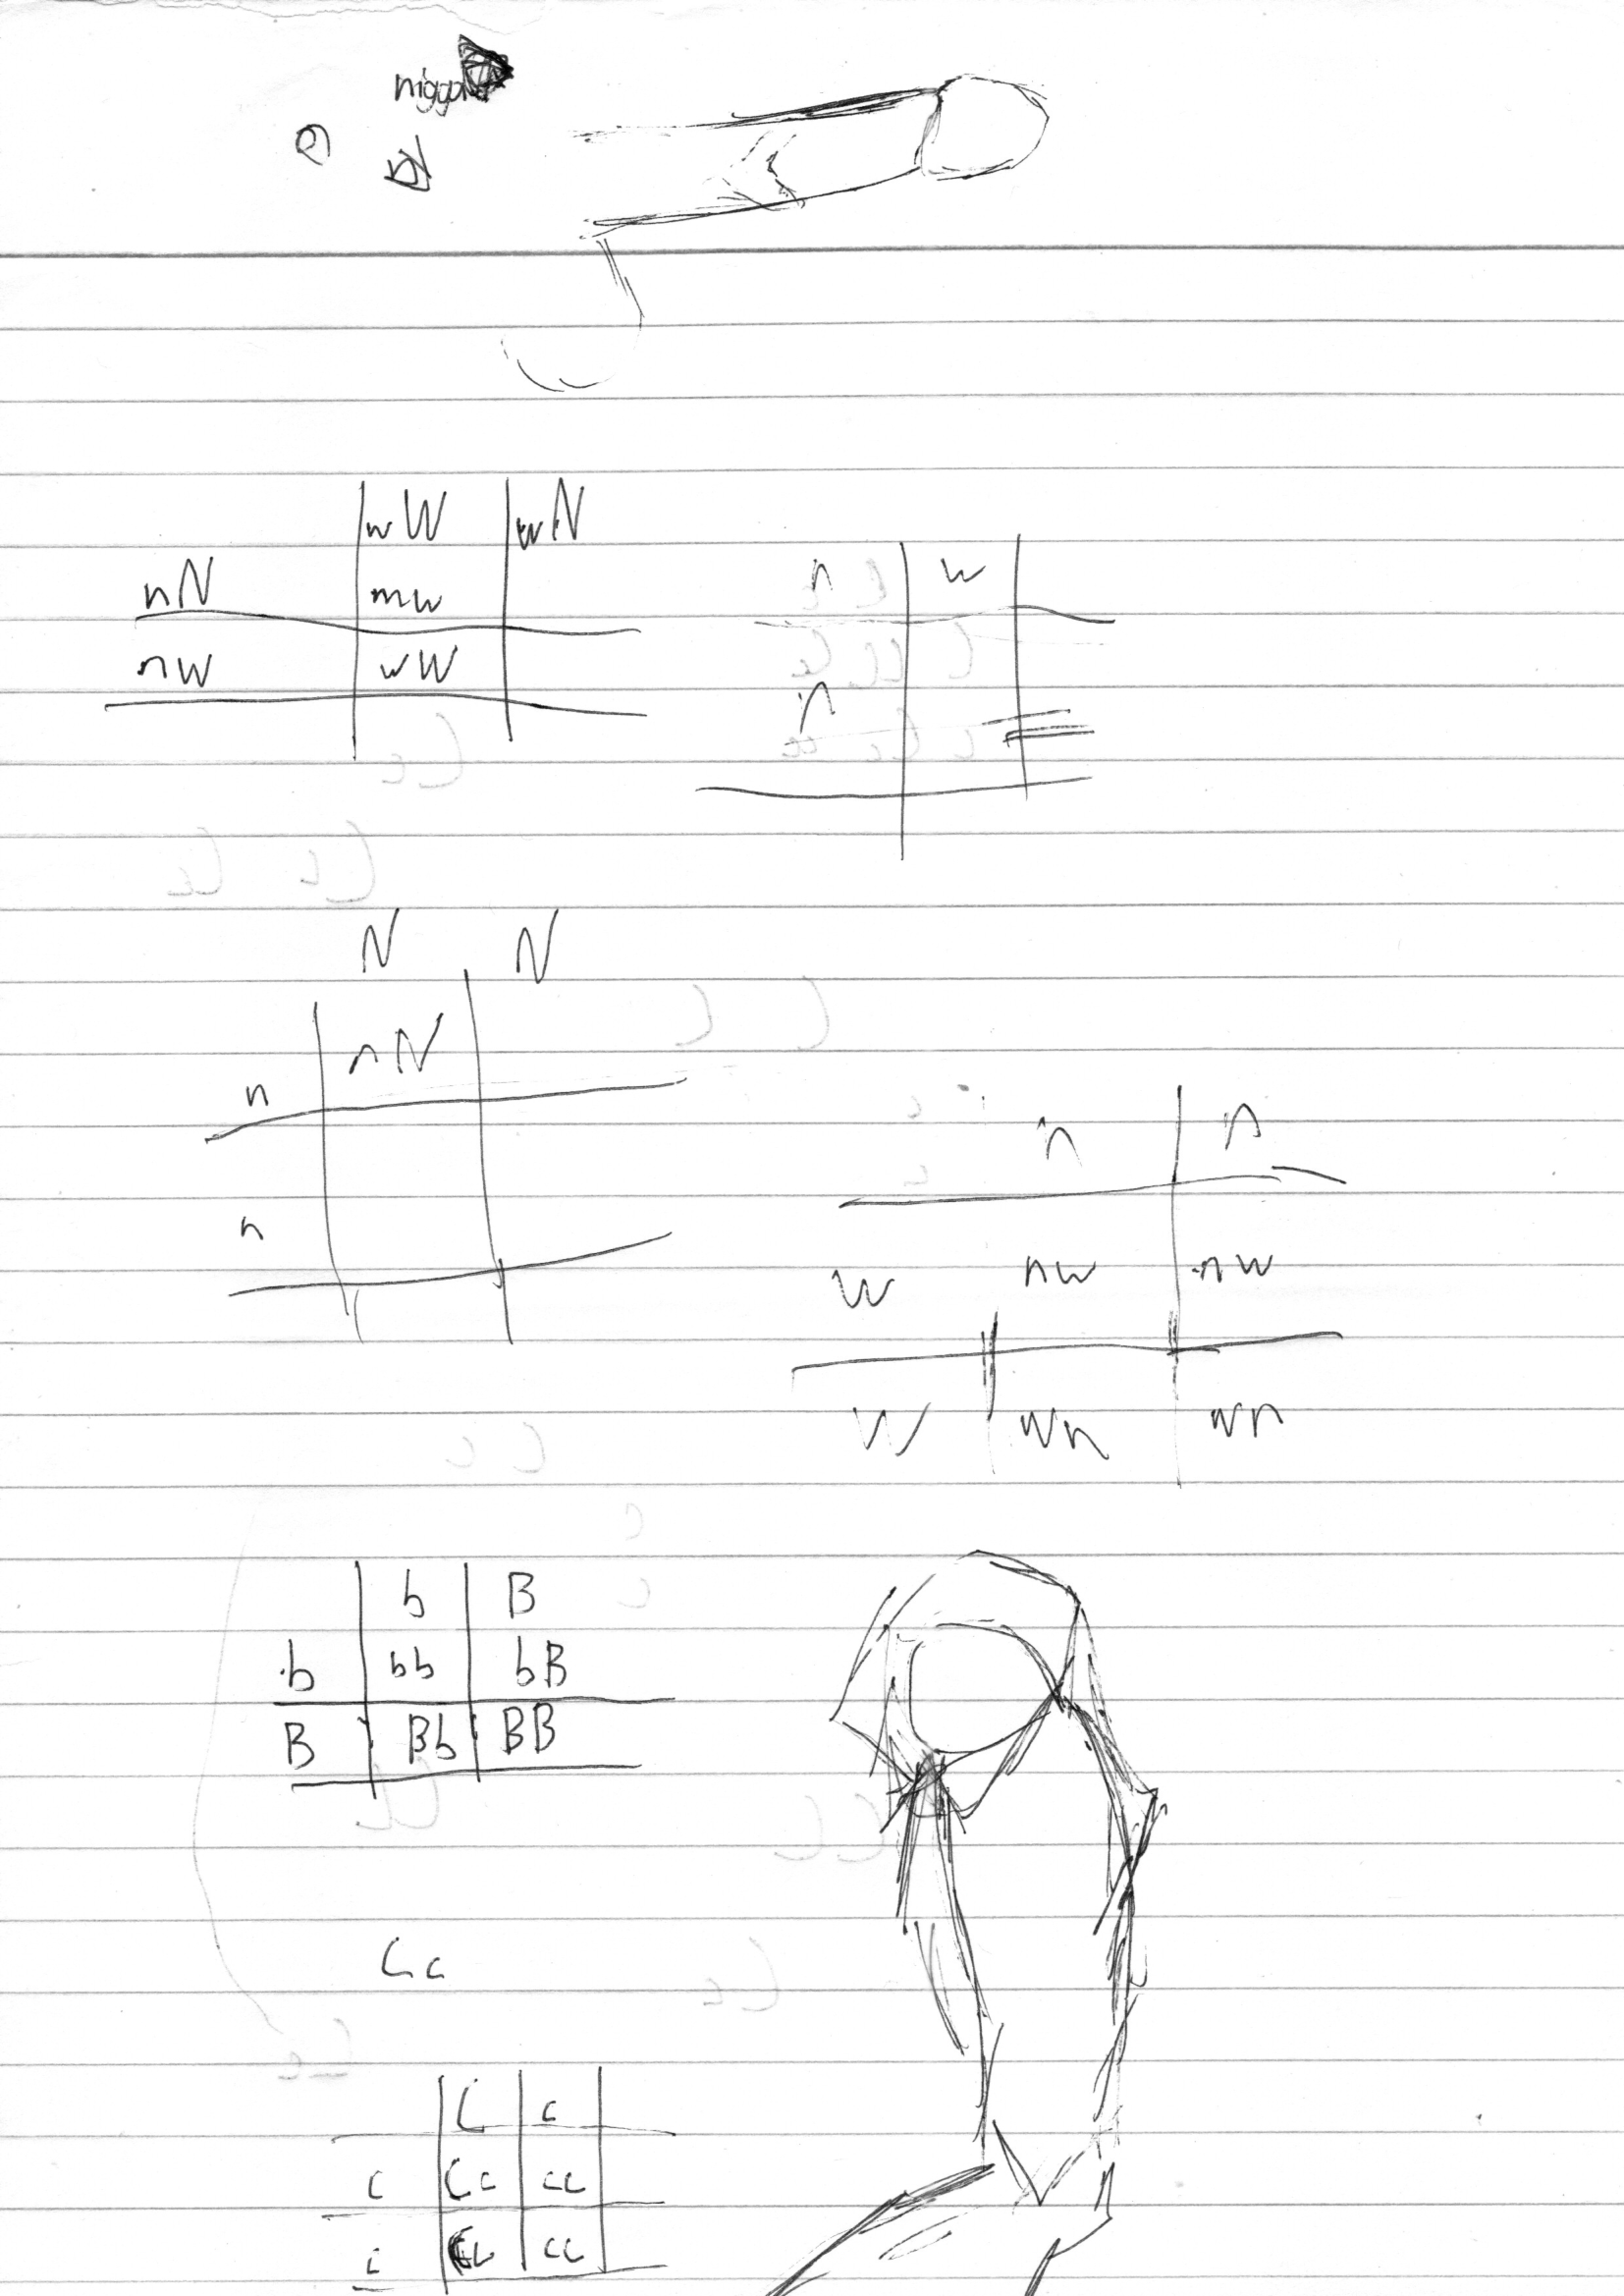 wW wN
nN mw
nW wW
n w
n
N N
nN
n
n
n n
W nw nw
W wn wn
b B
b bb bB
B Bb BB
Cc
C c
c Cc cc
c Cc cc